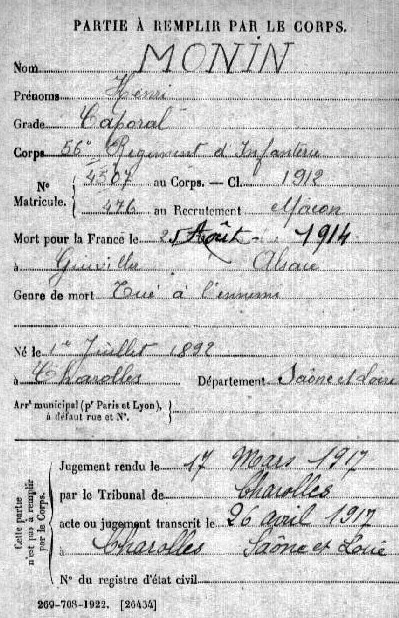 PARTIE À REMPLIR PAR LE CORPS.
Nom MONIN
Prénoms Henri
Grade Caporal
Corps 56e Régiment d'Infanterie
N° Matricule. { 4507 au Corps. — Cl. 1912
476 au Recrutement Mâcon
Mort pour la France le Août 1914
à Alsace
Genre de mort Tué à l'ennemi
Né le 1er Juillet 1892
à Charolles Département Saône et Loire
Arrt municipal (pr Paris et Lyon), à défaut rue et N°. }
Cette partie n'est pas à remplir par le Corps.
Jugement rendu le 17 Mars 1917
par le Tribunal de Charolles
acte ou jugement transcrit le 26 avril 1917
à Charolles Saône et Loire
N° du registre d'état civil
269-708-1922. [26434]